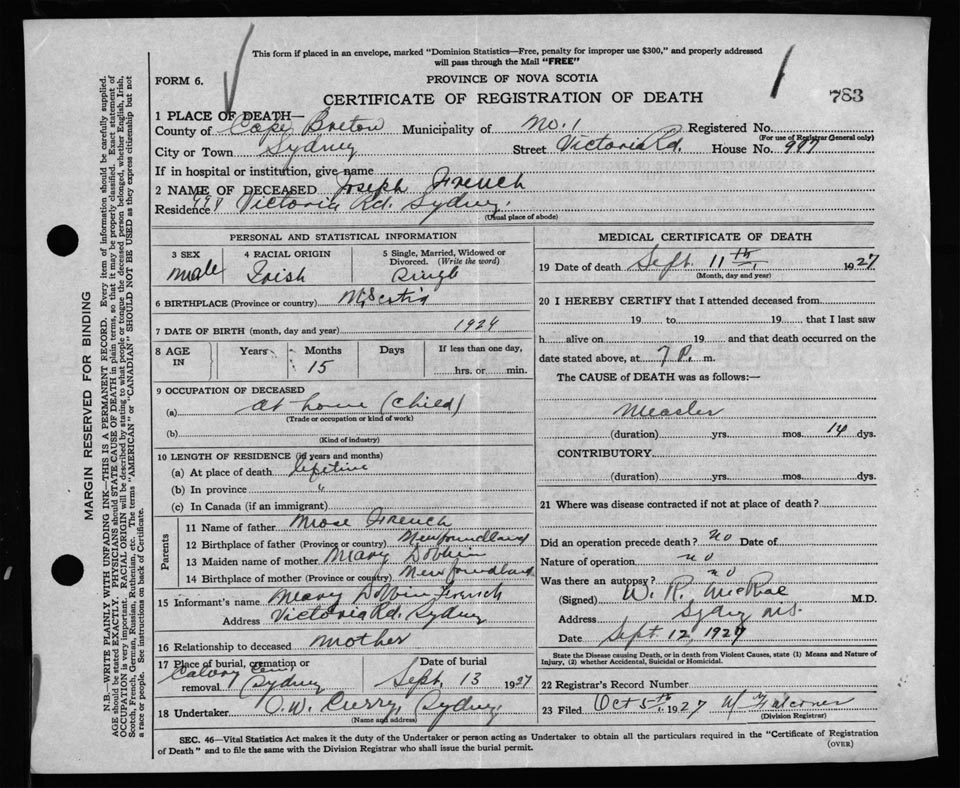 This form if placed in an envelope, marked "Dominion Statistics—Free, penalty for improper use $300," and properly addressed
will pass through the Mail "FREE"
FORM 6.
PROVINCE OF NOVA SCOTIA
CERTIFICATE OF REGISTRATION OF DEATH
783
1 PLACE OF DEATH—
County of Cape Breton Municipality of No. 1 Registered No.
(For use of Registrar General only)
City or Town Sydney Street Victoria Rd. House No.
If in hospital or institution, give name
2 NAME OF DECEASED Joseph French
Residence Victoria Rd. Sydney.
(Usual place of abode)
PERSONAL AND STATISTICAL INFORMATION
3 SEX
Male
4 RACIAL ORIGIN
Irish
5 Single, Married, Widowed or
Divorced. (Write the word)
Single
6 BIRTHPLACE (Province or country)
7 DATE OF BIRTH (month, day and year) 1924
8 AGE IN Years Months Days If less than one day,
15 hrs. or min.
9 OCCUPATION OF DECEASED
(a) at home (child)
(Trade or occupation or kind of work)
(b)
(Kind of industry)
10 LENGTH OF RESIDENCE (in years and months)
(a) At place of death lifetime
(b) In province "
(c) In Canada (if an immigrant)
Parents
11 Name of father Mose French
12 Birthplace of father (Province or country) Newfoundland
13 Maiden name of mother Mary Dobbin
14 Birthplace of mother (Province or country) Newfoundland
15 Informant's name Mary Dobbin French
Address Victoria Rd. Sydney
16 Relationship to deceased Mother
17 Place of burial, cremation or
removal Calvary Cem Sydney
Date of burial
Sept 13 1927
18 Undertaker O. W. Curry, Sydney.
(Name and address)
MEDICAL CERTIFICATE OF DEATH
19 Date of death Sept. 11th 1927
(Month, day and year)
20 I HEREBY CERTIFY that I attended deceased from
19 to 19 that I last saw
h alive on 19 and that death occurred on the
date stated above, at 7 P. m.
The CAUSE of DEATH was as follows:—
Measles
(duration) yrs. mos. 14 dys.
CONTRIBUTORY
(duration) yrs. mos. dys.
21 Where was disease contracted if not at place of death?
Did an operation precede death? no Date of
Nature of operation no
Was there an autopsy? no
(Signed) W. R. McRae M.D.
Address Sydney N.S.
Date Sept. 12, 1927
(State the Disease causing Death, or in death from Violent Causes, state (1) Means and Nature of
Injury, (2) whether Accidental, Suicidal or Homicidal.
22 Registrar's Record Number
23 Filed Oct 5th 1927 W Falconer
(Division Registrar)
SEC. 46—Vital Statistics Act makes it the duty of the Undertaker or person acting as Undertaker to obtain all the particulars required in the "Certificate of Registration
of Death" and to file the same with the Division Registrar who shall issue the burial permit.
(OVER)
MARGIN RESERVED FOR BINDING
N.B.—WRITE PLAINLY WITH UNFADING INK—THIS IS A PERMANENT RECORD. Every item of information should be carefully supplied.
AGE should be stated EXACTLY. PHYSICIANS should STATE CAUSE OF DEATH in plain terms, so that it may be properly classified. Exact statement of
OCCUPATION is very important. RACIAL ORIGIN will be described by stating to what people or tongue the deceased person belonged, whether English, Irish,
Scotch, French, German, Russian, Ruthenian, etc. The terms "AMERICAN" or "CANADIAN" SHOULD NOT BE USED as they express citizenship but not
a race or people. See instructions on back of Certificate.